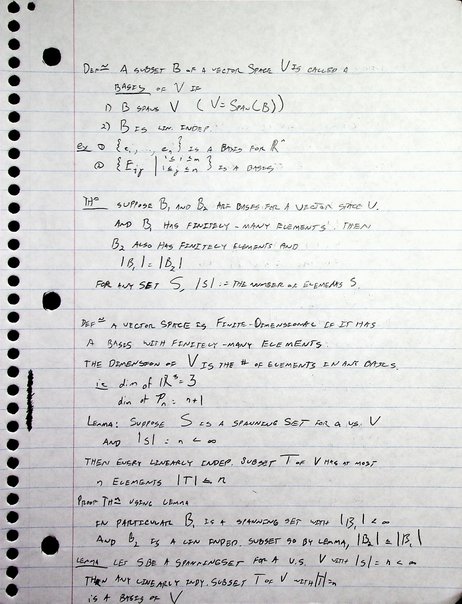 Defn A subset B of a vector space V is called a
basis of V if
1) B spans V (V = Span(B))
2) B is lin. indep.
ex ① {e1, ..., en} is a basis for R^n
② {Eij | 1≤i≤m 1≤j≤n} is a basis
Thm Suppose B1 and B2 are bases for a vector space V.
and B1 has finitely-many elements. Then
B2 also has finitely elements and
|B1| = |B2|
For any set S, |S| := the number of elements S.
Defn A vector space is finite-dimensional if it has
a basis with finitely-many elements.
The dimension of V is the # of elements in any basis.
ie dim of R^3 = 3
dim of Pn = n+1
Lemma: Suppose S is a spanning set for a v.s. V
and |S| = n < ∞
Then every linearly indep. subset T of V has at most
n elements |T| ≤ n
Proof Thm using Lemma
In particular B1 is a spanning set with |B1| < ∞
and B2 is a lin indep. subset so by Lemma, |B2| ≤ |B1|
Lemma Let S be a spanning set for a v.s. V with |S| = n < ∞
Then any linearly indp. subset T of V with |T| = n
is a basis of V